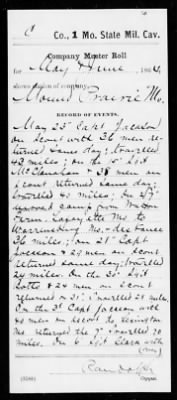 C Co., 1 Mo. State Mil. Cav.
Company Muster Roll
for May & June, 1864,
Station of company,
Mount Prairie Mo.
RECORD OF EVENTS.
May 23d Capt Jackson
on scout with 36 men re-
turned same day; travelled
43 miles; on the Sgt
McClanahan & 38 men on
scout returned same day;
travelled miles; on
moved camp from
Farm Lafayette Mo to
Warrensburg Mo distance
36 miles; on 21st Capt
Jackson & 29 men on scout
returned same day; travelled
24 miles. On the 30 Sgt
Potts & 24 men on scout
returned 31; travelled 28 miles.
On the 3d Capt Jackson with
40 men on scout to Lexington
Mo returned the 7 travelled 70
miles. On 6 Sgt with
(over)
Copyist.